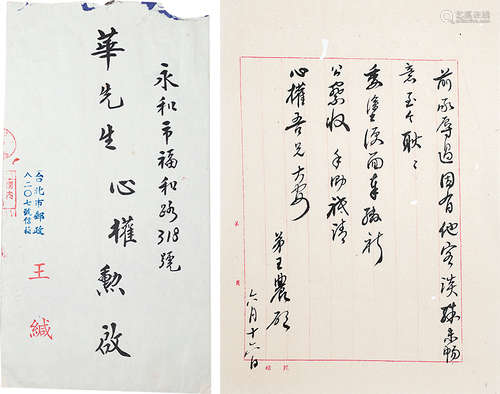 永和市福和路318號
華先生 心權 勳啟
台北市郵政
八二〇七號信箱
王 緘
前承辱過因有他客談殊未暢
意至今耿〻
委塗便面奉繳祈
公察收 手泐祇請
心權吾兄大安
弟王農頓
六月十六日